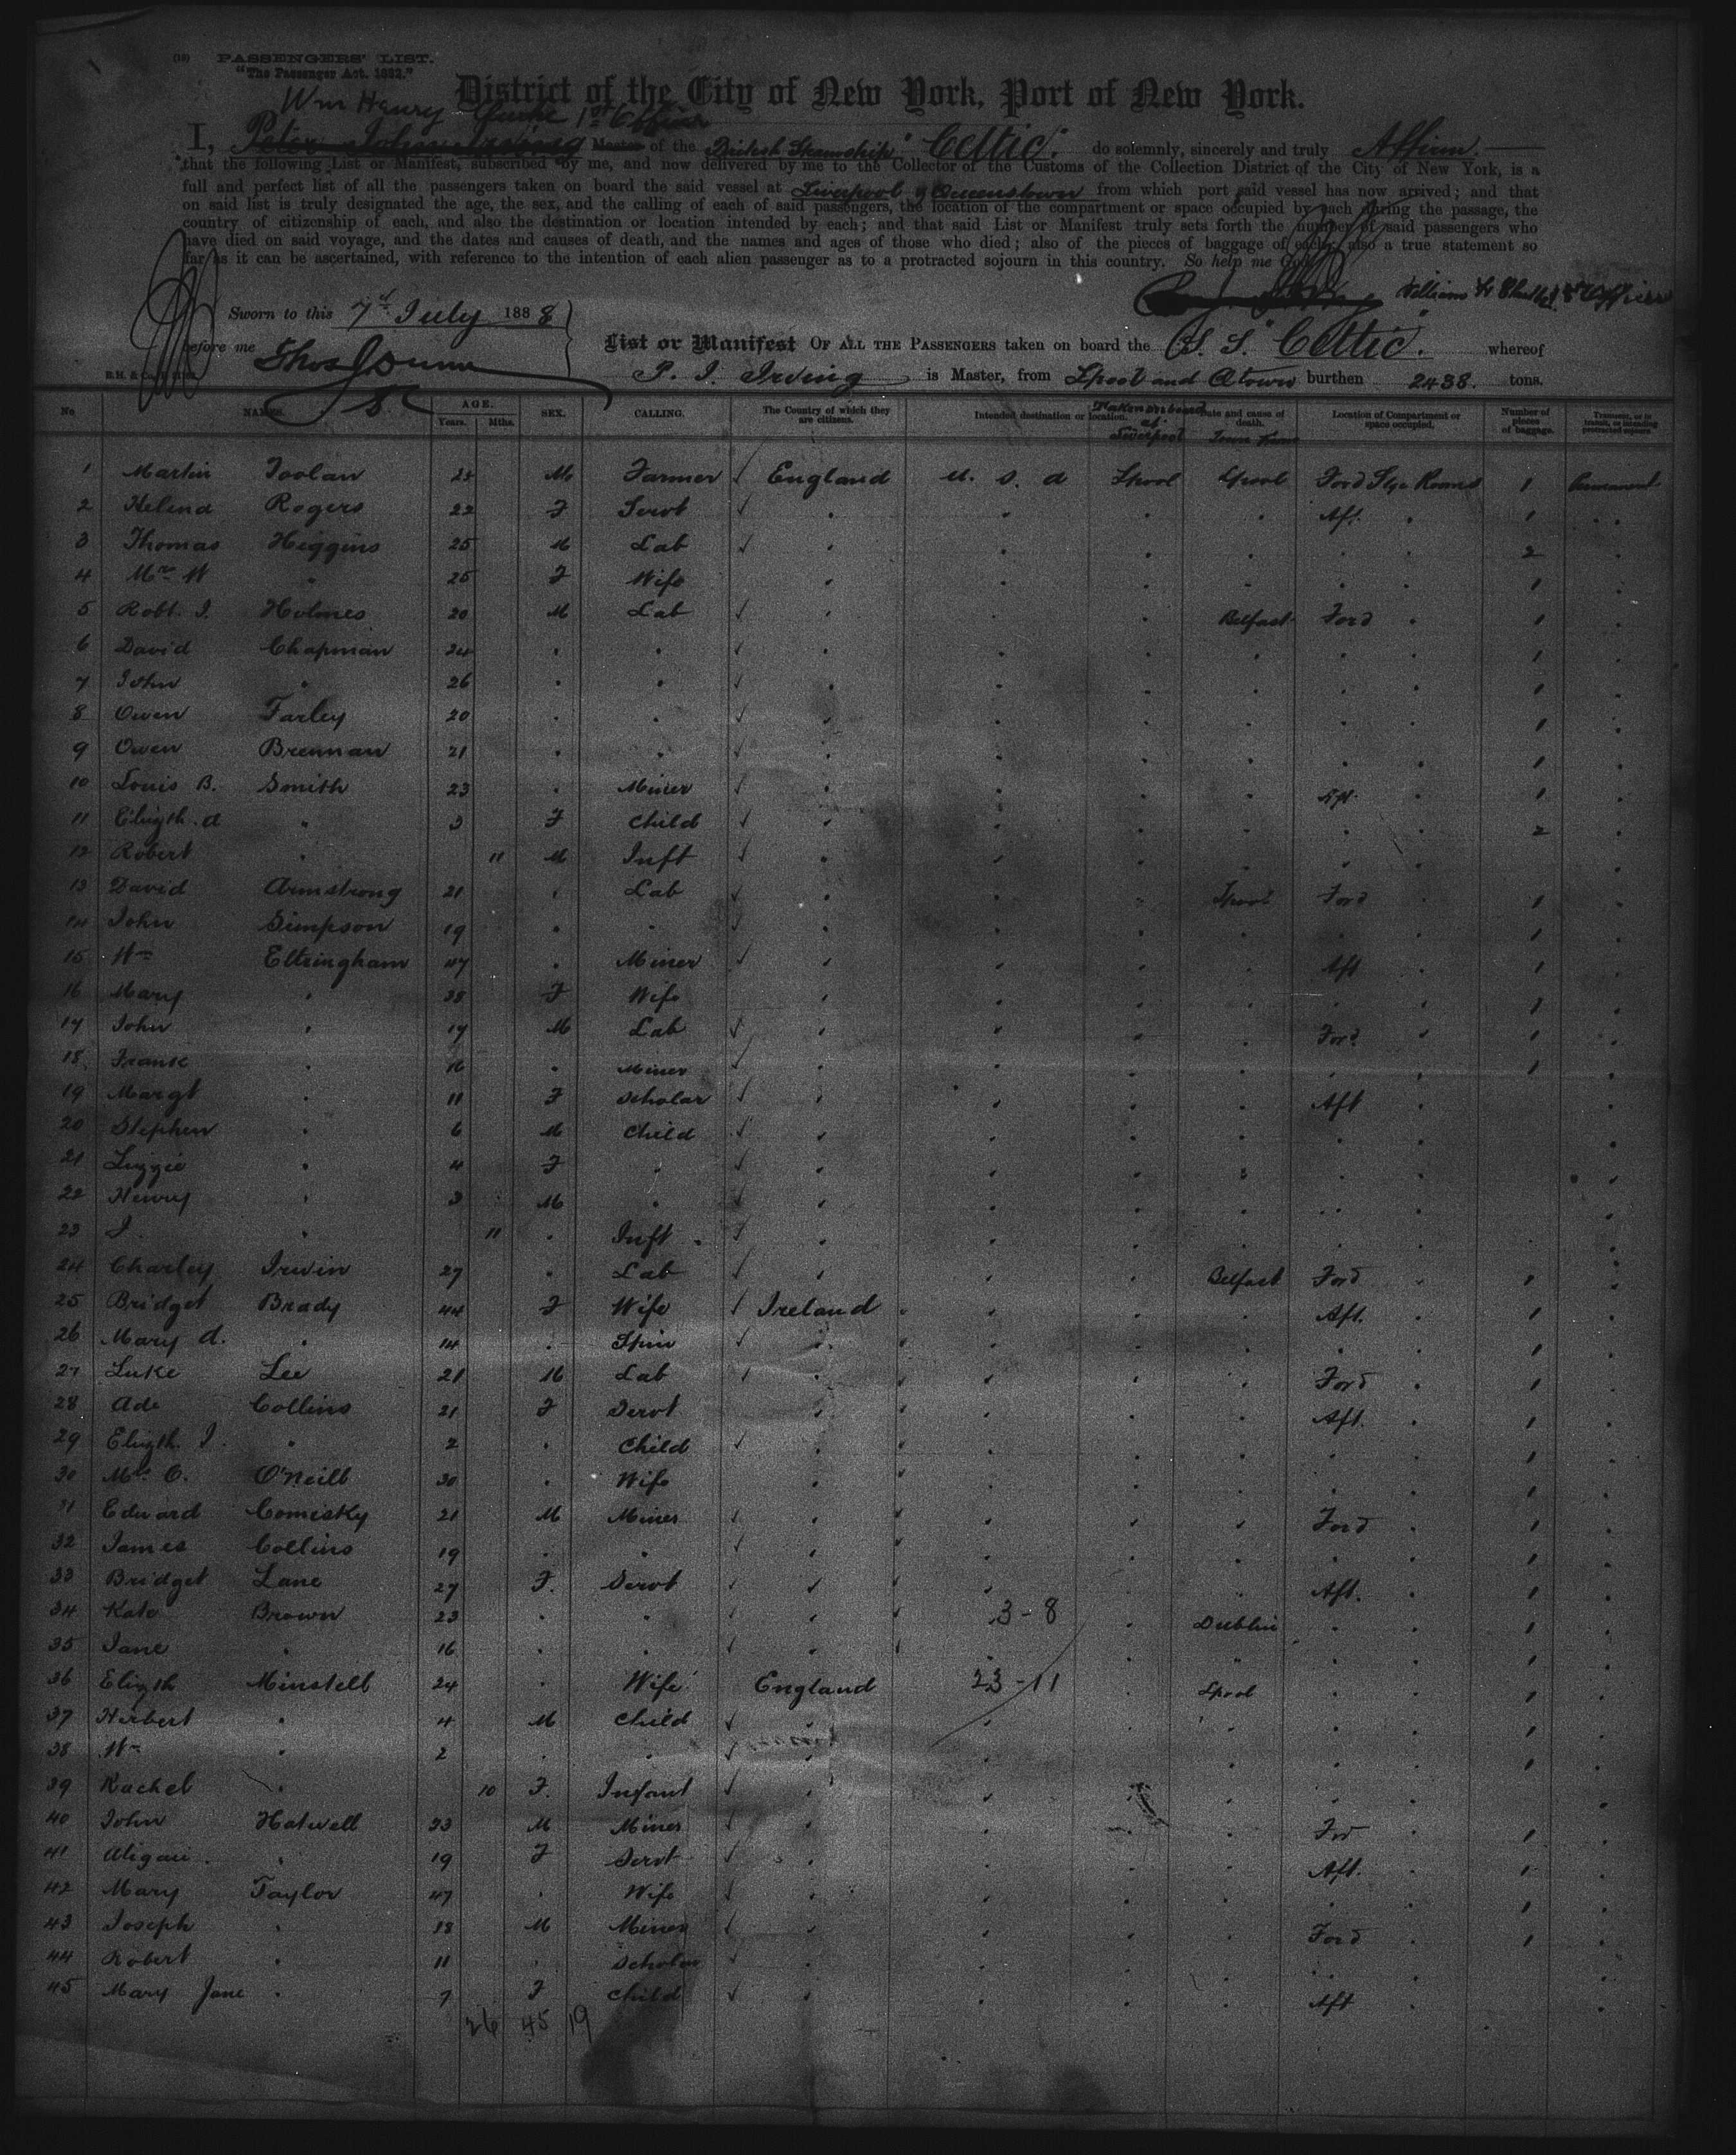 (18) PASSENGERS' LIST.
"The Passenger Act. 1882."
District of the City of New York, Port of New York.
Wm Henry 1st Officer
I, Peter John Irving Master of the British Steamship "Celtic." do solemnly, sincerely and truly Affirm.
that the following List or Manifest, subscribed by me, and now delivered by me to the Collector of the Customs of the Collection District of the City of New York, is a
full and perfect list of all the passengers taken on board the said vessel at Liverpool & Queenstown from which port said vessel has now arrived; and that
on said list is truly designated the age, the sex, and the calling of each of said passengers, the location of the compartment or space occupied by each during the passage, the
country of citizenship of each, and also the destination or location intended by each; and that said List or Manifest truly sets forth the number of said passengers who
have died on said voyage, and the dates and causes of death, and the names and ages of those who died; also of the pieces of baggage of each; also a true statement so
far as it can be ascertained, with reference to the intention of each alien passenger as to a protracted sojourn in this country. So help me God.
William H Officer
Sworn to this 7th July 1888
before me Thos
List or Manifest OF ALL THE PASSENGERS taken on board the S. S. "Celtic". whereof
P. J. Irving is Master, from Lpool and Qtown burthen 2438. tons.
No NAMES. AGE. Years. Mths. SEX. CALLING. The Country of which they are citizens. Intended destination or location. Taken on board at Liverpool Date and cause of death. Location of Compartment or space occupied. Number of pieces of baggage. Transient, or in transit, or intending protracted sojourn.
1 Martin Toolan 25 M Farmer ✓ England U. S. A Lpool Lpool Ford Stge Rooms 1 Permanent
2 Helena Rogers 22 F Servt ✓ " " " " Aft. " 1 "
3 Thomas Higgins 25 M Lab ✓ " " " " " " 2 "
4 Mrs W " 25 F Wife " " " " " " 1 "
5 Robt. J. Holmes 20 M Lab ✓ " " " Belfast Ford " 1 "
6 David Chapman 24 " " ✓ " " " " " " 1 "
7 John " 26 " " ✓ " " " " " " 1 "
8 Owen Farley 20 " " ✓ " " " " " " 1 "
9 Owen Brennan 21 " " ✓ " " " " " " 1 "
10 Louis B. Smith 23 " Miner ✓ " " " " Aft. " 1 "
11 Elizth. A " 3 F Child ✓ " " " " " " 2 "
12 Robert " 11 M Inft ✓ " " " " " " "
13 David Armstrong 21 " Lab ✓ " " " Lpool Ford " 1 "
14 John Simpson 19 " " ✓ " " " " " " 1 "
15 Wm Eltringham 47 " Miner ✓ " " " " Aft " 1 "
16 Mary " 38 F Wife " " " " " " 1 "
17 John " 17 M Lab ✓ " " " " Ford " 1 "
18 Frank " 16 " Miner ✓ " " " " " " 1 "
19 Margt " 11 F Scholar ✓ " " " " Aft " "
20 Stephen " 6 M Child ✓ " " " " " " "
21 Lizzie " 4 F " ✓ " " " " " " "
22 Henry " 3 M " ✓ " " " " " " "
23 J. " 11 " Inft ✓ " " " " " " "
24 Charley Irwin 27 " Lab ✓ " " " Belfast Ford " 1 "
25 Bridget Brady 44 F Wife ✓ Ireland " " " " Aft. " 1 "
26 Mary A. " 14 " Spin ✓ " " " " " " 1 "
27 Luke Lee 21 M Lab ✓ " " " " Ford " 1 "
28 Ada Collins 21 F Servt " " " " Aft. " 1 "
29 Elizth. J. " 2 " Child ✓ " " " " " " 1 "
30 Mrs C. O'Neill 30 " Wife " " " " " " 1 "
31 Edward Comisky 21 M Miner ✓ " " " " Ford " 1 "
32 James Collins 19 " " ✓ " " " " " " 1 "
33 Bridget Lane 27 F. Servt ✓ " " " " Aft. " 1 "
34 Kate Brown 23 " " ✓ " 3-8 " Dublin " " 1 "
35 Jane " 16 " " ✓ " " " " " " 1 "
36 Elizth Minstell 24 " Wife England 23-11 " Lpool " " 1 "
37 Herbert " 4 M Child ✓ " " " " " " 1 "
38 Wm " 2 " " ✓ " " " " " " 1 "
39 Rachel " 10 F. Infant ✓ " " " " " " "
40 John Hatwell 33 M Miner ✓ " " " " For " 1 "
41 " 19 F Servt ✓ " " " " Aft. " 1 "
42 Mary Taylor 47 " Wife ✓ " " " " " " 1 "
43 Joseph " 18 M Miner ✓ " " " " Ford " 1 "
44 Robert " 11 " Scholar ✓ " " " " " " "
45 Mary Jane " 7 F Child ✓ " " " " Aft " "
26 45 19